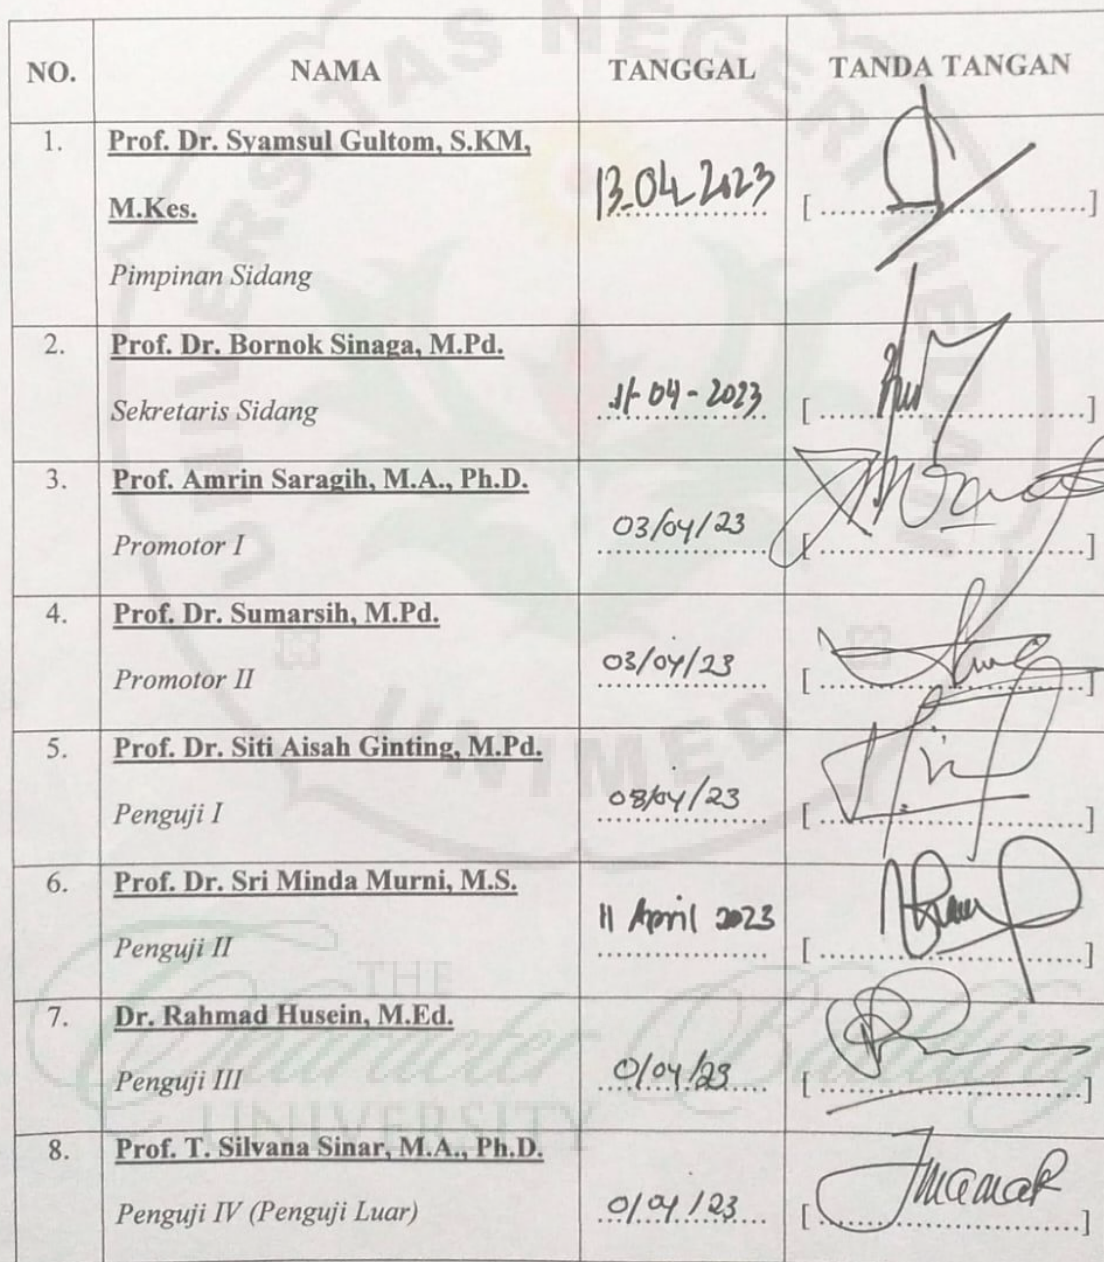 NO. NAMA TANGGAL TANDA TANGAN
1. Prof. Dr. Syamsul Gultom, S.KM,
M.Kes.
13-04-2023 [ ........................... ]
Pimpinan Sidang
2. Prof. Dr. Bornok Sinaga, M.Pd.
Sekretaris Sidang 11-04-2023 [ ........................... ]
3. Prof. Amrin Saragih, M.A., Ph.D.
Promotor I 03/04/23 [ ........................... ]
4. Prof. Dr. Sumarsih, M.Pd.
Promotor II 03/04/23 [ ........................... ]
5. Prof. Dr. Siti Aisah Ginting, M.Pd.
Penguji I 03/04/23 [ ........................... ]
6. Prof. Dr. Sri Minda Murni, M.S.
Penguji II 11 April 2023 [ ........................... ]
7. Dr. Rahmad Husein, M.Ed.
Penguji III 0/04/23 [ ........................... ]
8. Prof. T. Silvana Sinar, M.A., Ph.D.
Penguji IV (Penguji Luar) 0/04/23 [ ........................... ]
UNIVERSITAS NEGERI MEDAN
UNIMED
THE
Character Building
UNIVERSITY